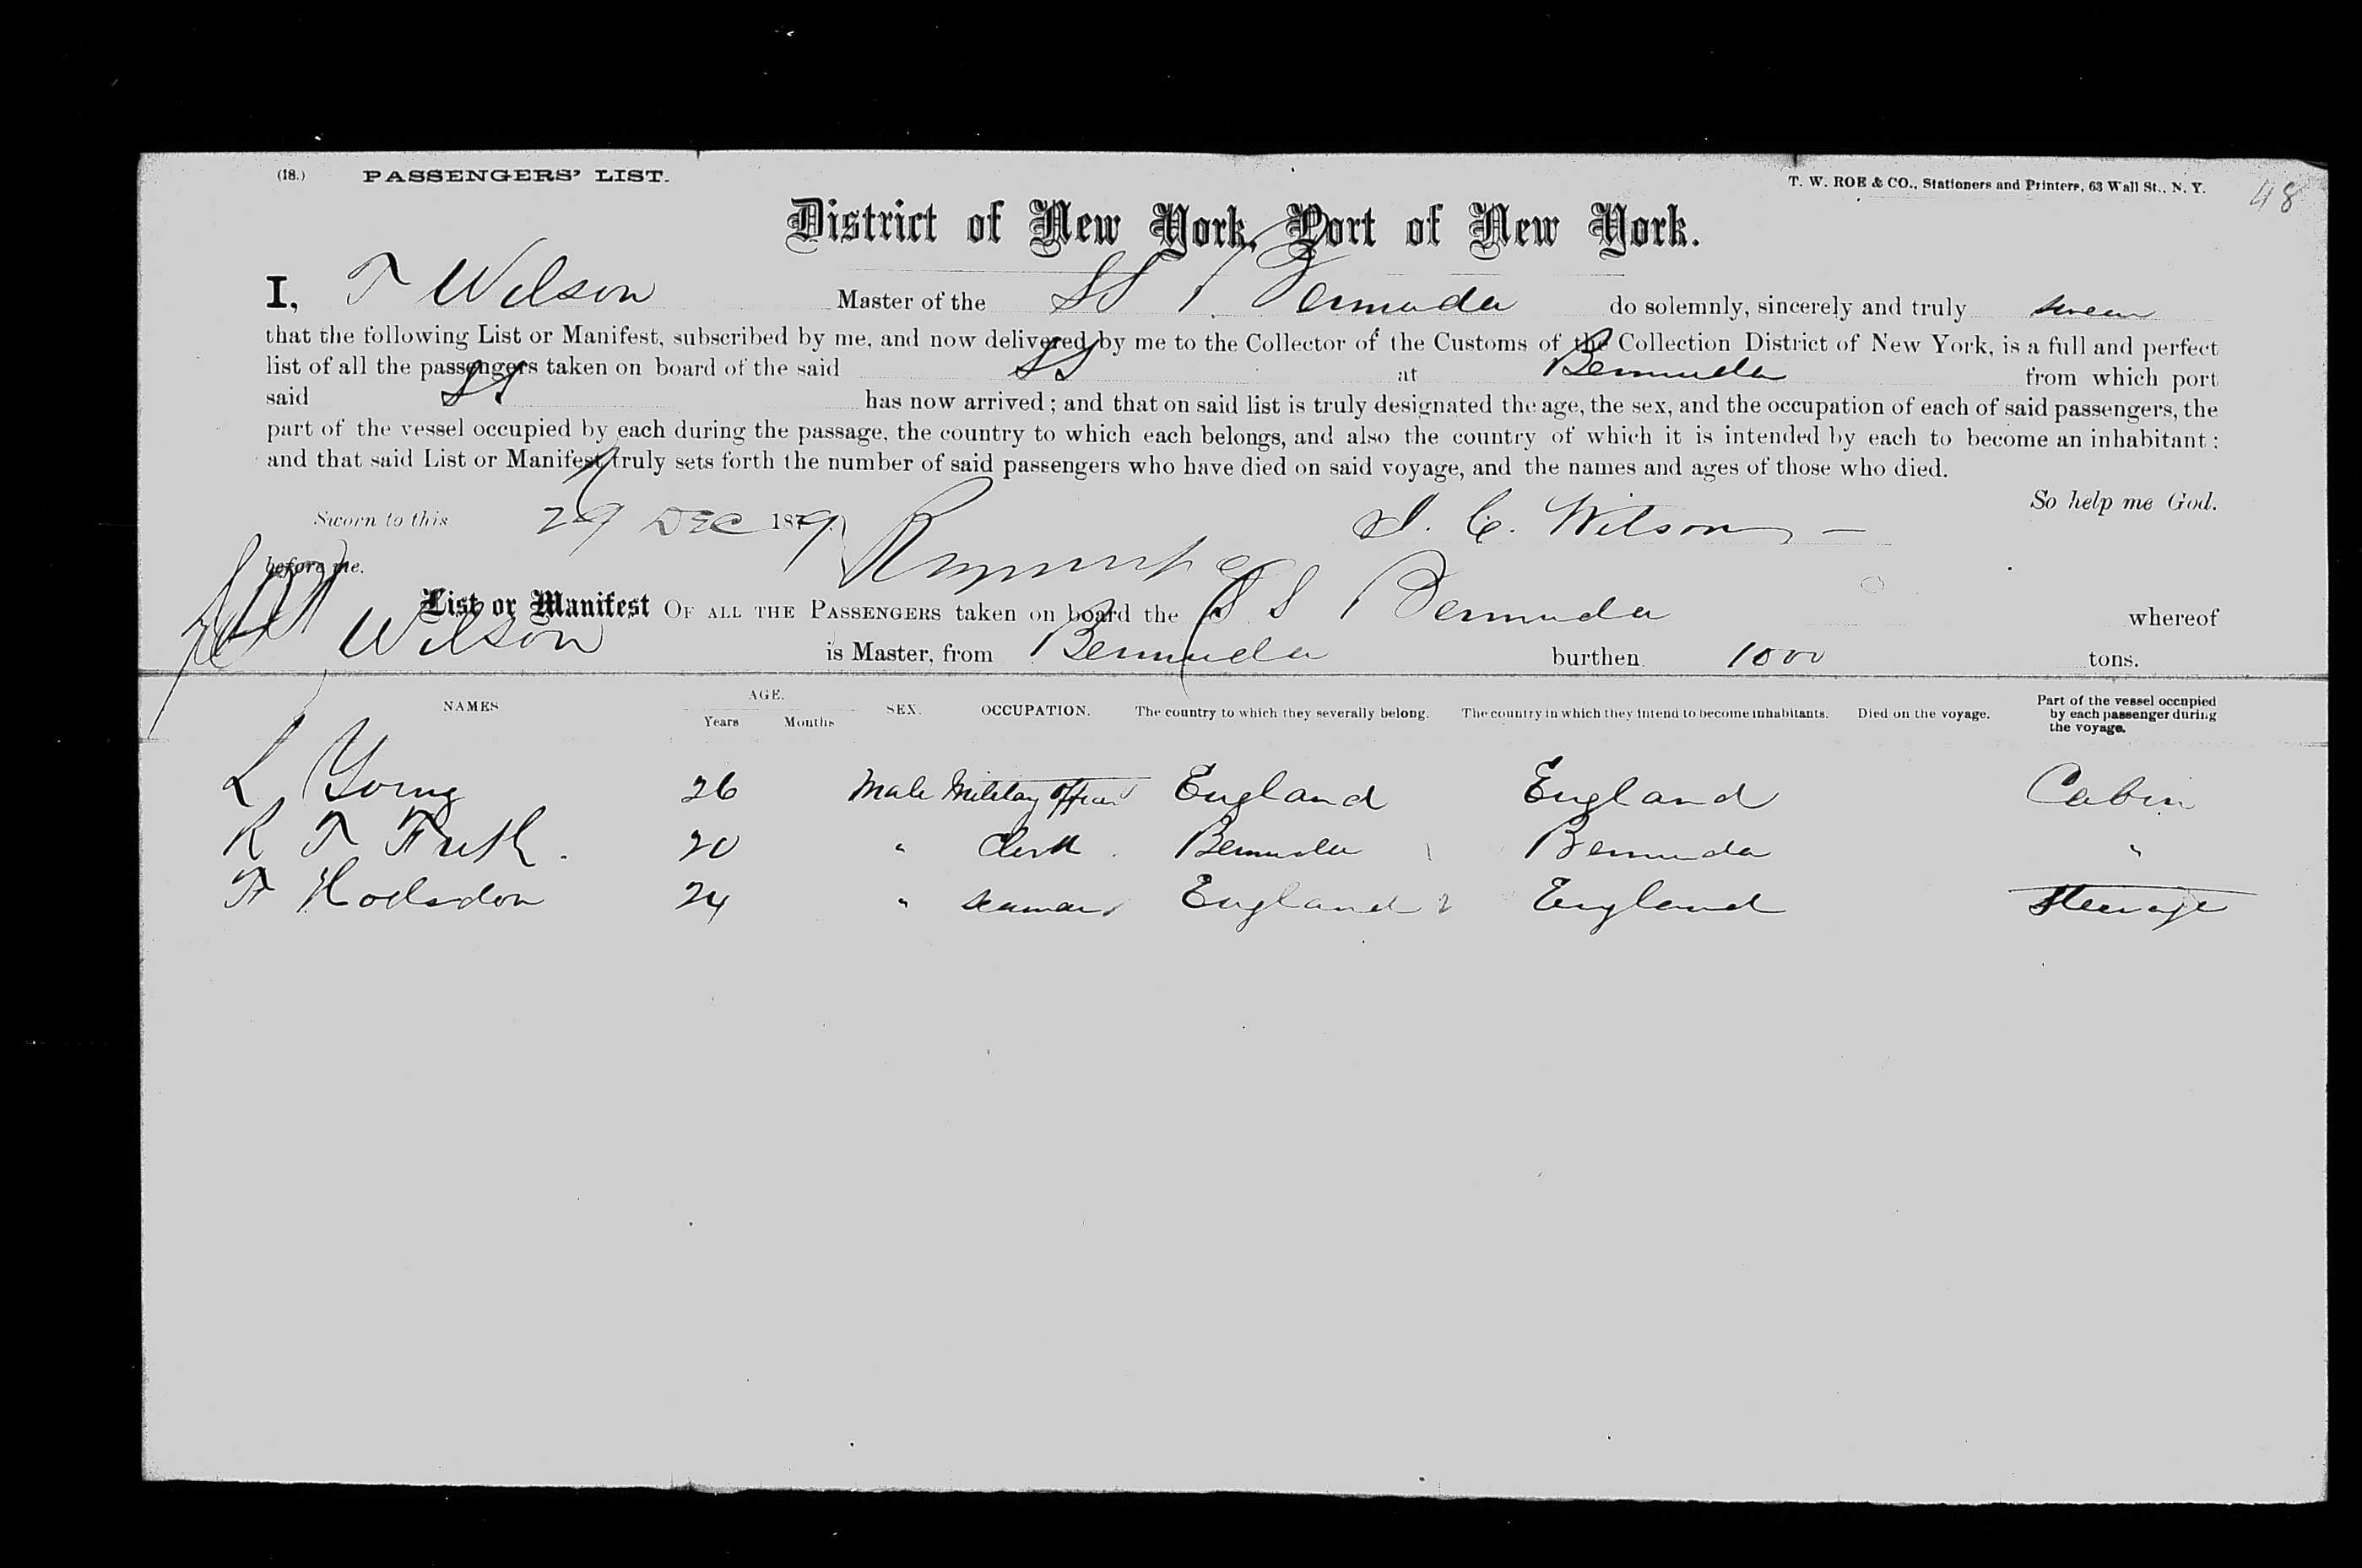 (18.) PASSENGERS' LIST. T. W. ROE & CO., Stationers and Printers, 63 Wall St., N. Y. 48
District of New York, Port of New York.
I, T Wilson Master of the SS Bermuda do solemnly, sincerely and truly swear
that the following List or Manifest, subscribed by me, and now delivered by me to the Collector of the Customs of the Collection District of New York, is a full and perfect
list of all the passengers taken on board of the said SS at Bermuda from which port
said SS has now arrived; and that on said list is truly designated the age, the sex, and the occupation of each of said passengers, the
part of the vessel occupied by each during the passage, the country to which each belongs, and also the country of which it is intended by each to become an inhabitant;
and that said List or Manifest truly sets forth the number of said passengers who have died on said voyage, and the names and ages of those who died.
So help me God.
Sworn to this 29 DEC 1879 C. Wilson
before me.
List or Manifest OF ALL THE PASSENGERS taken on board the SS Bermuda whereof
Wilson is Master, from Bermuda burthen 1000 tons.
NAMES AGE. Years Months SEX. OCCUPATION. The country to which they severally belong. The country in which they intend to become inhabitants. Died on the voyage. Part of the vessel occupied by each passenger during the voyage.
L Young 26 Male Military Officer England England Cabin
R T 20 " Clerk Bermuda Bermuda "
F Hodsdon 24 " Seaman England England Steerage